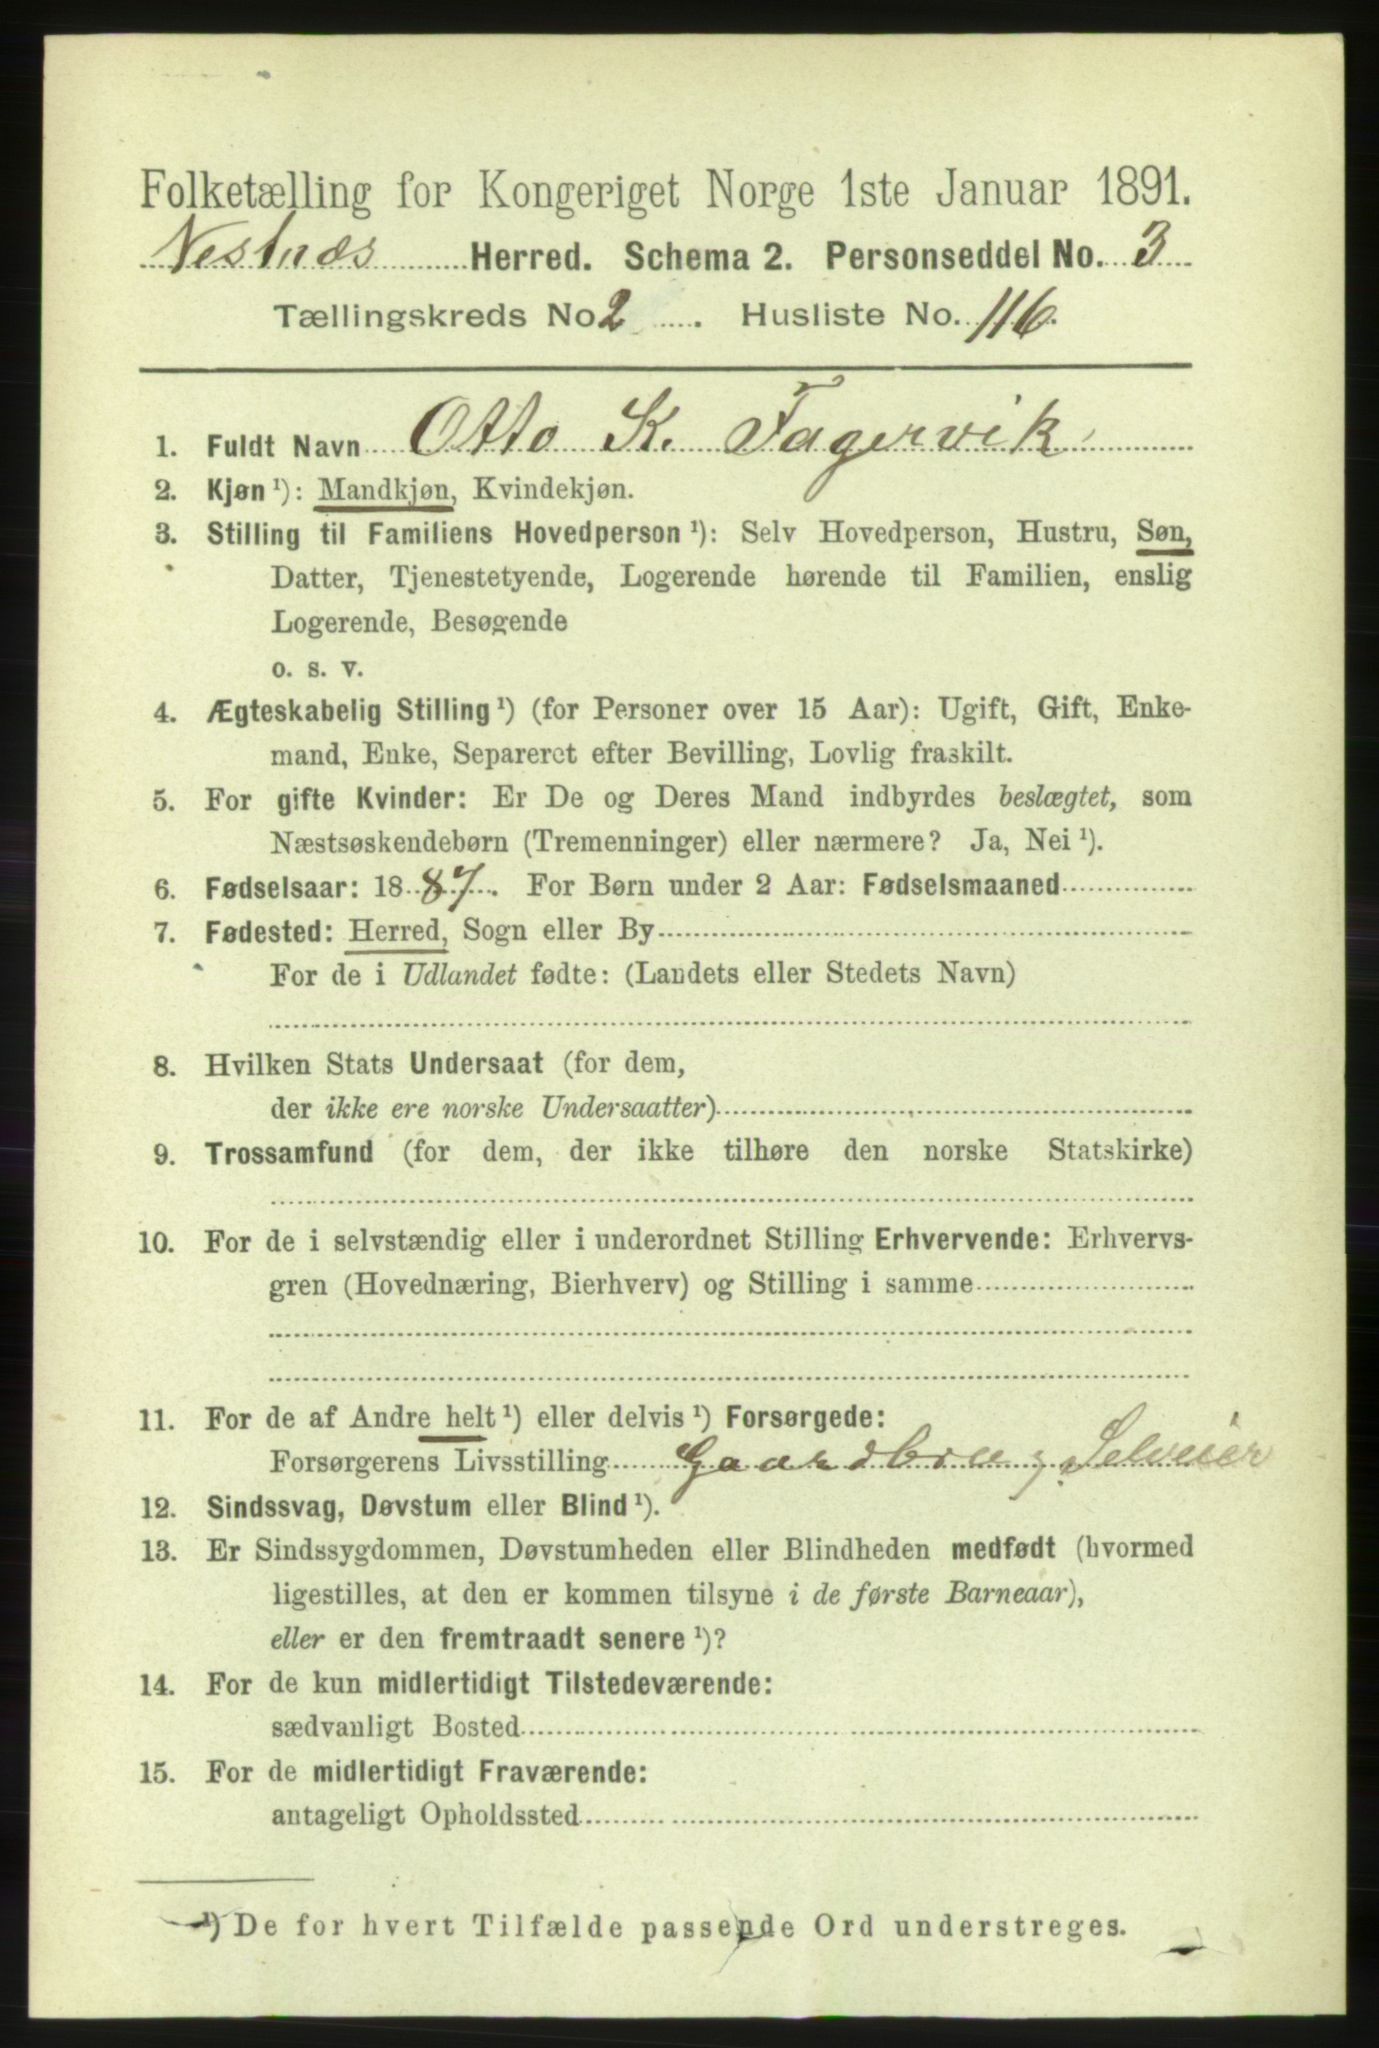 Folketælling for Kongeriget Norge 1ste Januar 1891.
Vestnæs Herred. Schema 2. Personseddel No. 3
Tællingskreds No 2 . Husliste No. 116.
1. Fuldt Navn Otto K. Fagervik
2. Kjøn ¹): Mandkjøn, Kvindekjøn.
3. Stilling til Familiens Hovedperson ¹): Selv Hovedperson, Hustru, Søn,
Datter, Tjenestetyende, Logerende hørende til Familien, enslig
Logerende, Besøgende
o. s. v.
4. Ægteskabelig Stilling ¹) (for Personer over 15 Aar): Ugift, Gift, Enke-
mand, Enke, Separeret efter Bevilling, Lovlig fraskilt.
5. For gifte Kvinder: Er De og Deres Mand indbyrdes beslægtet, som
Næstsøskendebørn (Tremenninger) eller nærmere? Ja, Nei ¹).
6. Fødselsaar: 18 87. For Børn under 2 Aar: Fødselsmaaned
7. Fødested: Herred, Sogn eller By
For de i Udlandet fødte: (Landets eller Stedets Navn)
8. Hvilken Stats Undersaat (for dem,
der ikke ere norske Undersaatter)
9. Trossamfund (for dem, der ikke tilhøre den norske Statskirke)
10. For de i selvstændig eller i underordnet Stilling Erhvervende: Erhvervs-
gren (Hovednæring, Bierhverv) og Stilling i samme
11. For de af Andre helt ¹) eller delvis ¹) Forsørgede:
Forsørgerens Livsstilling Gaardbrug, Selveier
12. Sindssvag, Døvstum eller Blind ¹).
13. Er Sindssygdommen, Døvstumheden eller Blindheden medfødt (hvormed
ligestilles, at den er kommen tilsyne i de første Barneaar),
eller er den fremtraadt senere ¹)?
14. For de kun midlertidigt Tilstedeværende:
sædvanligt Bosted
15. For de midlertidigt Fraværende:
antageligt Opholdssted
¹) De for hvert Tilfælde passende Ord understreges.